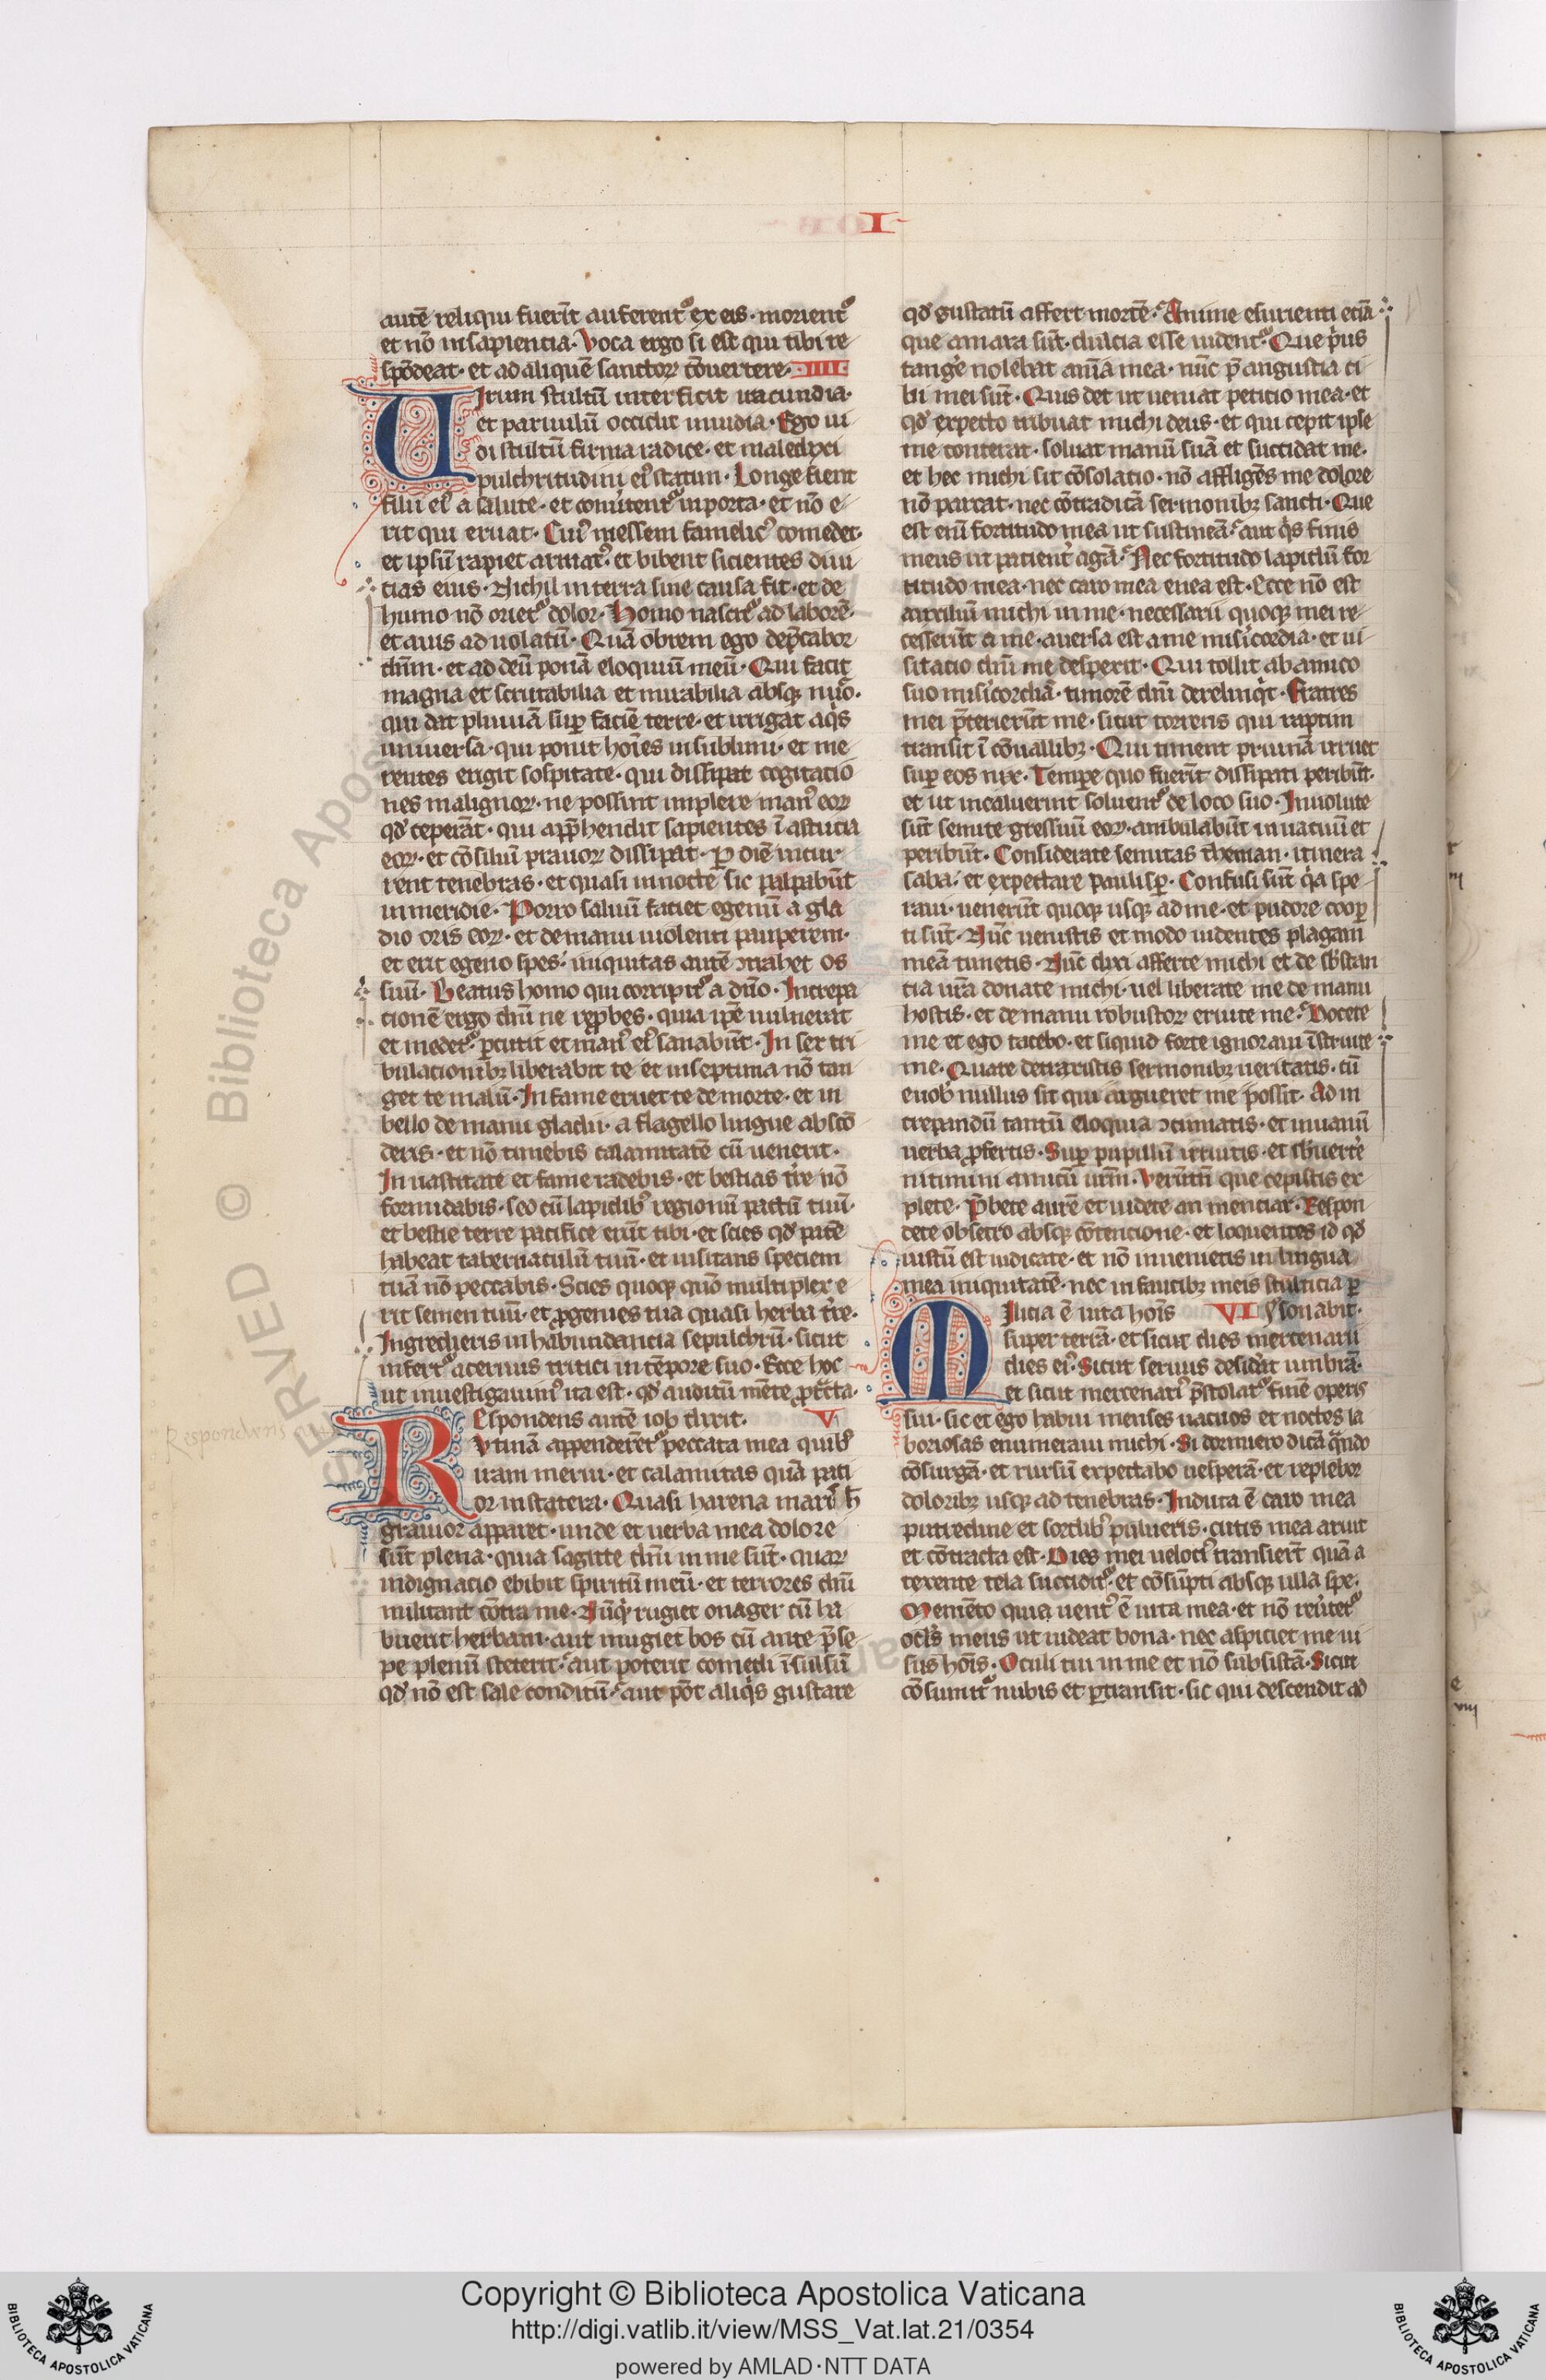 I
autē reliqui fuerīt auferentᷣ ex eis · morientᷣ
et nō in sapientia · Voca ergo si est qui tibi re-
spōdeat · et ad aliquē sanctoꝝ cōuertere · IIII
Uirum stultū interficit iracundia ·
et paruulū occidit inuidia · Ego ui-
di stultū firma radice · et maledixi
pulchritudini eiꝰ statim · Longe fient
filii eiꝰ a salute · et conterentᷣ in porta · et nō e-
rit qui eruat · Cuiꝰ messem famelicꝰ comedet ·
et ipsū rapiet armatꝰ · et bibent sicientes diui-
tias eius · Nichil in terra sine causa fit · et de
humo nō orietᷣ dolor · Homo nascitᷣ ad laborē ·
et auis ad uolatū · Quā obrem ego dep̄cabor
dn̄m · et ad deū ponā eloquiū meū · Qui facit
magna et scrutabilia et mirabilia absqꝫ nūo ·
qui dat pluuiā suꝑ faciē terre · et irrigat aqⁱs
uniuersa · qui ponit hoīes in sublimi · et me-
rentes erigit sospitate · qui dissipat cogitatio
nes malignoꝝ · ne possint implere manꝰ eoꝝ
qđ ceperāt · qui app̄hendit sapientes ī astucia
eoꝝ · et cōsiliū prauoꝝ dissipat · Per diē incur-
rent tenebras · et quasi in nocte sic palpabūt
in meridie · Porro saluū faciet egenū a gla
dio oris eoꝝ · et de manu uiolenti pauperem ·
et erit egeno spes · iniquitas autē ꝯtrahet os
suū · Beatus homo qui corripitᷣ a dn̄o · Increpa
cionē ergo dn̄i ne reꝓbes · quia ipē uulnerat
et medetᷣ · ꝑcutit et manꝰ eiꝰ sanabūt · In sex tri
bulacionibꝫ liberabit te et in septima nō tan
get te malū · In fame eruet te de morte · et in
bello de manu gladii · a flagello lingue abscō
deris · et nō timebis calamitatē cū uenerit ·
In uastitate et fame ridebis · et bestias tr̄e nō
formidabis · sed cū lapidibꝰ regionū pactū tuū ·
et bestie terre pacifice erūt tibi · et scies qđ pacē
habeat tabernaculū tuū · et uisitans speciem
tuā nō peccabis · Scies quoqꝫ quō multiplex e
rit semen tuū · et ꝓgenies tua quasi herba tr̄e ·
Ingredieris in habundancia sepulchrū · sicut
infertᷣ aceruus tritici in tēpore suo · Ecce hoc
ut inuestigauimꝰ ita est · qđ auditū mēte ꝑtᵃcta ·
Respondens autē iob dixit · V
Vtinā appenderētᷣ peccata mea quibꝰ
iram merui · et calamitas quā pati
or in statera · Quasi harena marꝭ h̄
grauior apparet · unde et uerba mea dolore
sūt plena · quia sagitte dn̄i in me sūt · quaꝝ
indignacio ebibit spiritū meū · et terrores dn̄i
militant cōtra me · Nūqⁱd rugiet onager cū ha
buerit herbam · aut mugiet bos cū ante p̄se-
pe plenū steterit · aut poterit comedi ī sulsū
qđ nō est sale conditū · aut pōt aliqⁱs gustare
qđ gustatū affert mortē · Anime esurienti etiā
que amara sūt · dulcia esse uidentᷣ · Que pⁱus
tangˀe nolebat anīa mea · nūc p̄ angustia ci
bi mei sūt · Quis det ut ueniat peticio mea · et
qđ expecto tribuat michi deus · et qui cepit ipse
me conterat · soluat manū suā et succidat me ·
et hec michi sit cōsolatio · nō affligēs me dolore
nō parcat · nec cōtradicā sermonibꝫ sancti · Que
est enī fortitudo mea ut sustineā · aut qⁱs finis
meus ut patientˀ agā · Nec fortitudo lapidū for
titudo mea · nec caro mea enea est · Ecce nō est
auxiliū michi in me · necessarii quoqꝫ mei re-
cesserūt a me · auersa est a me misˀicordia · et ui-
sitacio dn̄i me desperit · Qui tollit ab amico
suo misˀicordiā · timorē dn̄i derelinqⁱt · Fratres
mei p̄terierūt me · sicut torrens qui raptim
transit ī cōuallibꝫ · Qui timent pruinā irruet
suꝑ eos nix · Tempe quo fuerīt dissipati peribūt ·
et ut incaluerint soluentᷣ de loco suo · Inuolute
sūt semite gressuū eoꝝ · ambulabūt in uacuū et
peribūt · Considerate semitas theman · itinera
saba · et expectare paulisꝑ · Confusi sūt qⁱa spe
raui · uenerūt quoqꝫ usqꝫ ad me · et pudore cooꝑ
ti sūt · Nūc uenistis et modo uidentes plagam
meā timetis · Nūc dixi afferte michi et de sb̄stan
tia ur̄a donate michi · uel liberate me de manu
hostis · et de manu robustoꝝ eruite me · Docete
me et ego tacebo · et si quid forte ignoraui īstruite
me · Quare detraxistis sermonibꝫ ueritatis · cū
e uob̄ nullus sit qui arguere me possit · Ad in
crepandū tantū eloquia ꝯcinnatis · et in uanū
uerba ꝓfertis · Suꝑ pupillū irruitis · et sb̄uertˀe
nitimini amicū ur̄m · Verūtn̄ que cepistis ex
plete · P̄bete aurē et uidete an menciar · Respon
dete obsecro absqꝫ cōtencione · et loquentes id qđ
iustū est iudicate · et nō inuenietis in lingua
mea iniquitatē · nec in faucibꝫ meis stulticia ꝑ
Milicia ē uita hoīs VI sonabit ·
super terrā · et sicut dies mercenarii
dies eiꝰ · Sicut seruus desidˀat umbrā ·
et sicut mercenariꝰ p̄stolatᷣ finē operis
sui · sic et ego habui menses uacuos et noctes la
boriosas enumeraui michi · Si dormiero dicā qᵃndo
cōsurgā · et rursū expectabo uesperā · et replebor
doloribꝫ usqꝫ ad tenebras · Induta ē caro mea
putredine et sordibꝰ pulueris · cutis mea aruit
et cōtracta est · Dies mei uelociꝰ transierūt quā a
texente tela succiditᷣ · et cōsūpti absqꝫ ulla spe ·
Memēto quia uentꝰ ē uita mea · et nō reuˀtetᷣ
oclꝰs meus ut uideat bona · nec aspiciet me ui
sus hoīs · Oculi tui in me et nō subsistā · Sicut
cōsumitᷣ nubis et ꝑtransit · sic qui descendit ad
Respondens
Copyright © Biblioteca Apostolica Vaticana
http://digi.vatlib.it/view/MSS_Vat.lat.21/0354
powered by AMLAD·NTT DATA
BIBLIOTECA APOSTOLICA VATICANA
BIBLIOTECA APOSTOLICA VATICANA